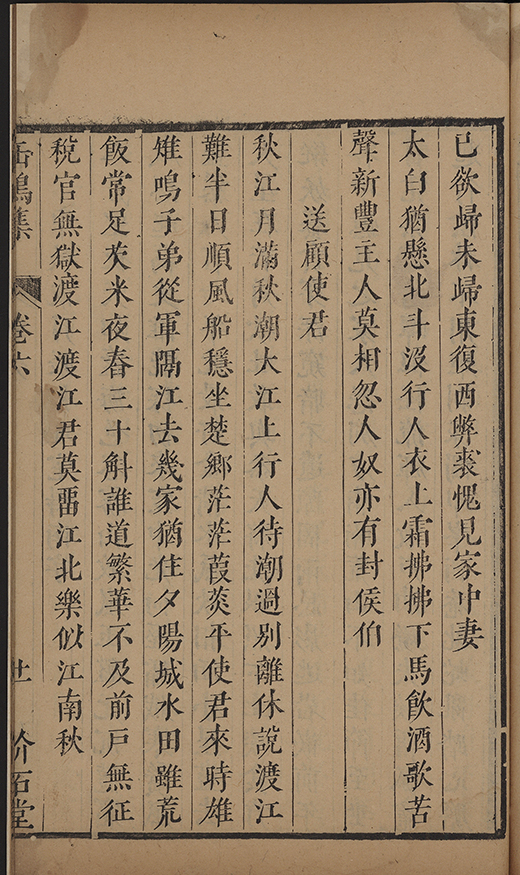 已欲歸未歸東復西弊裘愧見家中妻
太白猶懸北斗沒行人衣上霜拂拂下馬飲酒歌苦
聲新豐主人莫相忽人奴亦有封侯伯
送顧使君
秋江月滿秋潮大江上行人待潮過別離休說渡江
難半日順風船穩坐楚鄉茫茫葭菼平使君來時雄
雉鳴子弟從軍隔江去幾家猶住夕陽城水田雖荒
飯常足茨米夜舂三十斛誰道繁華不及前戶無征
稅官無獄渡江渡江君莫畱江北樂似江南秋
集 卷六 廿一 石堂